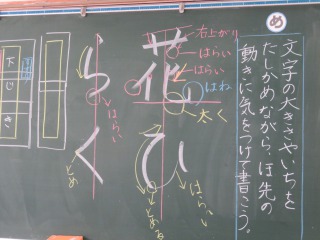 め
文字の大きさやいちを
たしかめながら、ほ先の
動きに気をつけて書こう。
花
ひ
らく
右上がり
はらい
はらい
はね
太く
はらい
とめる
はらい
とめ
下じき